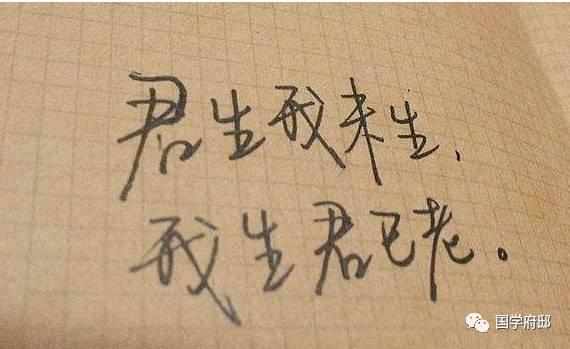 君生我未生，
我生君已老。
国学府邸